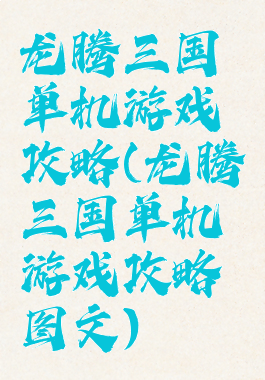 龙腾三国
单机游戏
攻略(龙腾
三国单机
游戏攻略
图文)